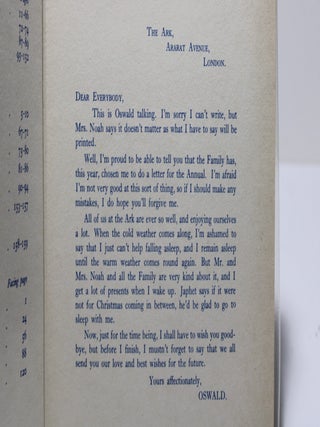 -92
11-66
72-74
87-89
98-152
5-10
67-71
75-80
81-86
90-94
153-157
158-159
Facing page
1
24
56
88
120
THE ARK,
ARARAT AVENUE,
LONDON.
DEAR EVERYBODY,
This is Oswald talking. I'm sorry I can't write, but
Mrs. Noah says it doesn't matter as what I have to say will be
printed.
Well, I'm proud to be able to tell you that the Family has,
this year, chosen me to do a letter for the Annual. I'm afraid
I'm not very good at this sort of thing, so if I should make any
mistakes, I do hope you'll forgive me.
All of us at the Ark are ever so well, and enjoying ourselves
a lot. When the cold weather comes along, I'm ashamed to
say that I just can't help falling asleep, and I remain asleep
until the warm weather comes round again. But Mr. and
Mrs. Noah and all the Family are very kind about it, and I
get a lot of presents when I wake up. Japhet says if it were
not for Christmas coming in between, he'd be glad to go to
sleep with me.
Now, just for the time being, I shall have to wish you good-
bye, but before I finish, I mustn't forget to say that we all
send you our love and best wishes for the future.
Yours affectionately,
OSWALD.